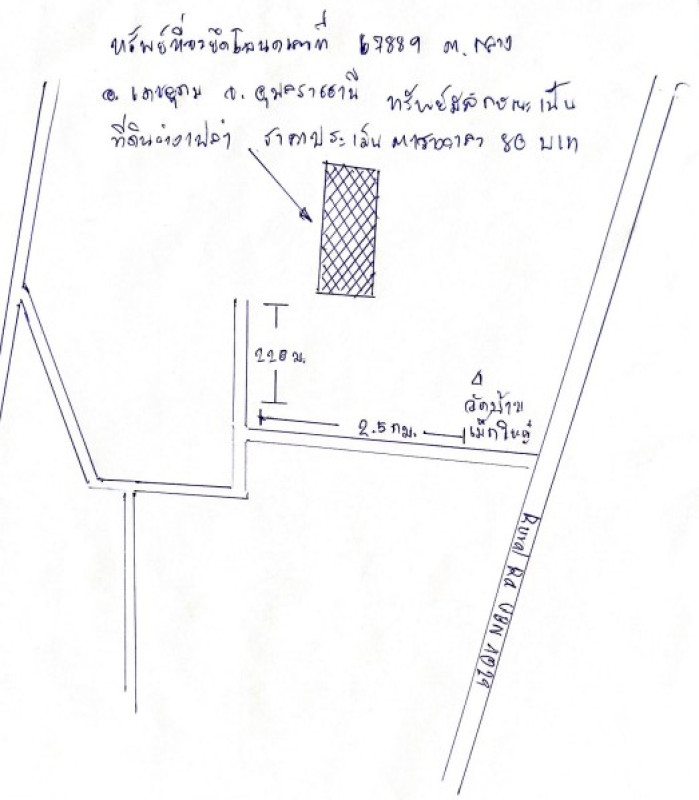 ทรัพย์ที่จะยึดโฉนดเลขที่ 67889 ต. กลาง
อ. เดชอุดม จ. อุบลราชธานี ทรัพย์มีลักษณะเป็น
ที่ดินว่างเปล่า ราคาประเมิน ตารางวาละ 80 บาท
220 ม.
วัดบ้าน
เม็กใหญ่
2.5 กม.
Rural Rd UBN